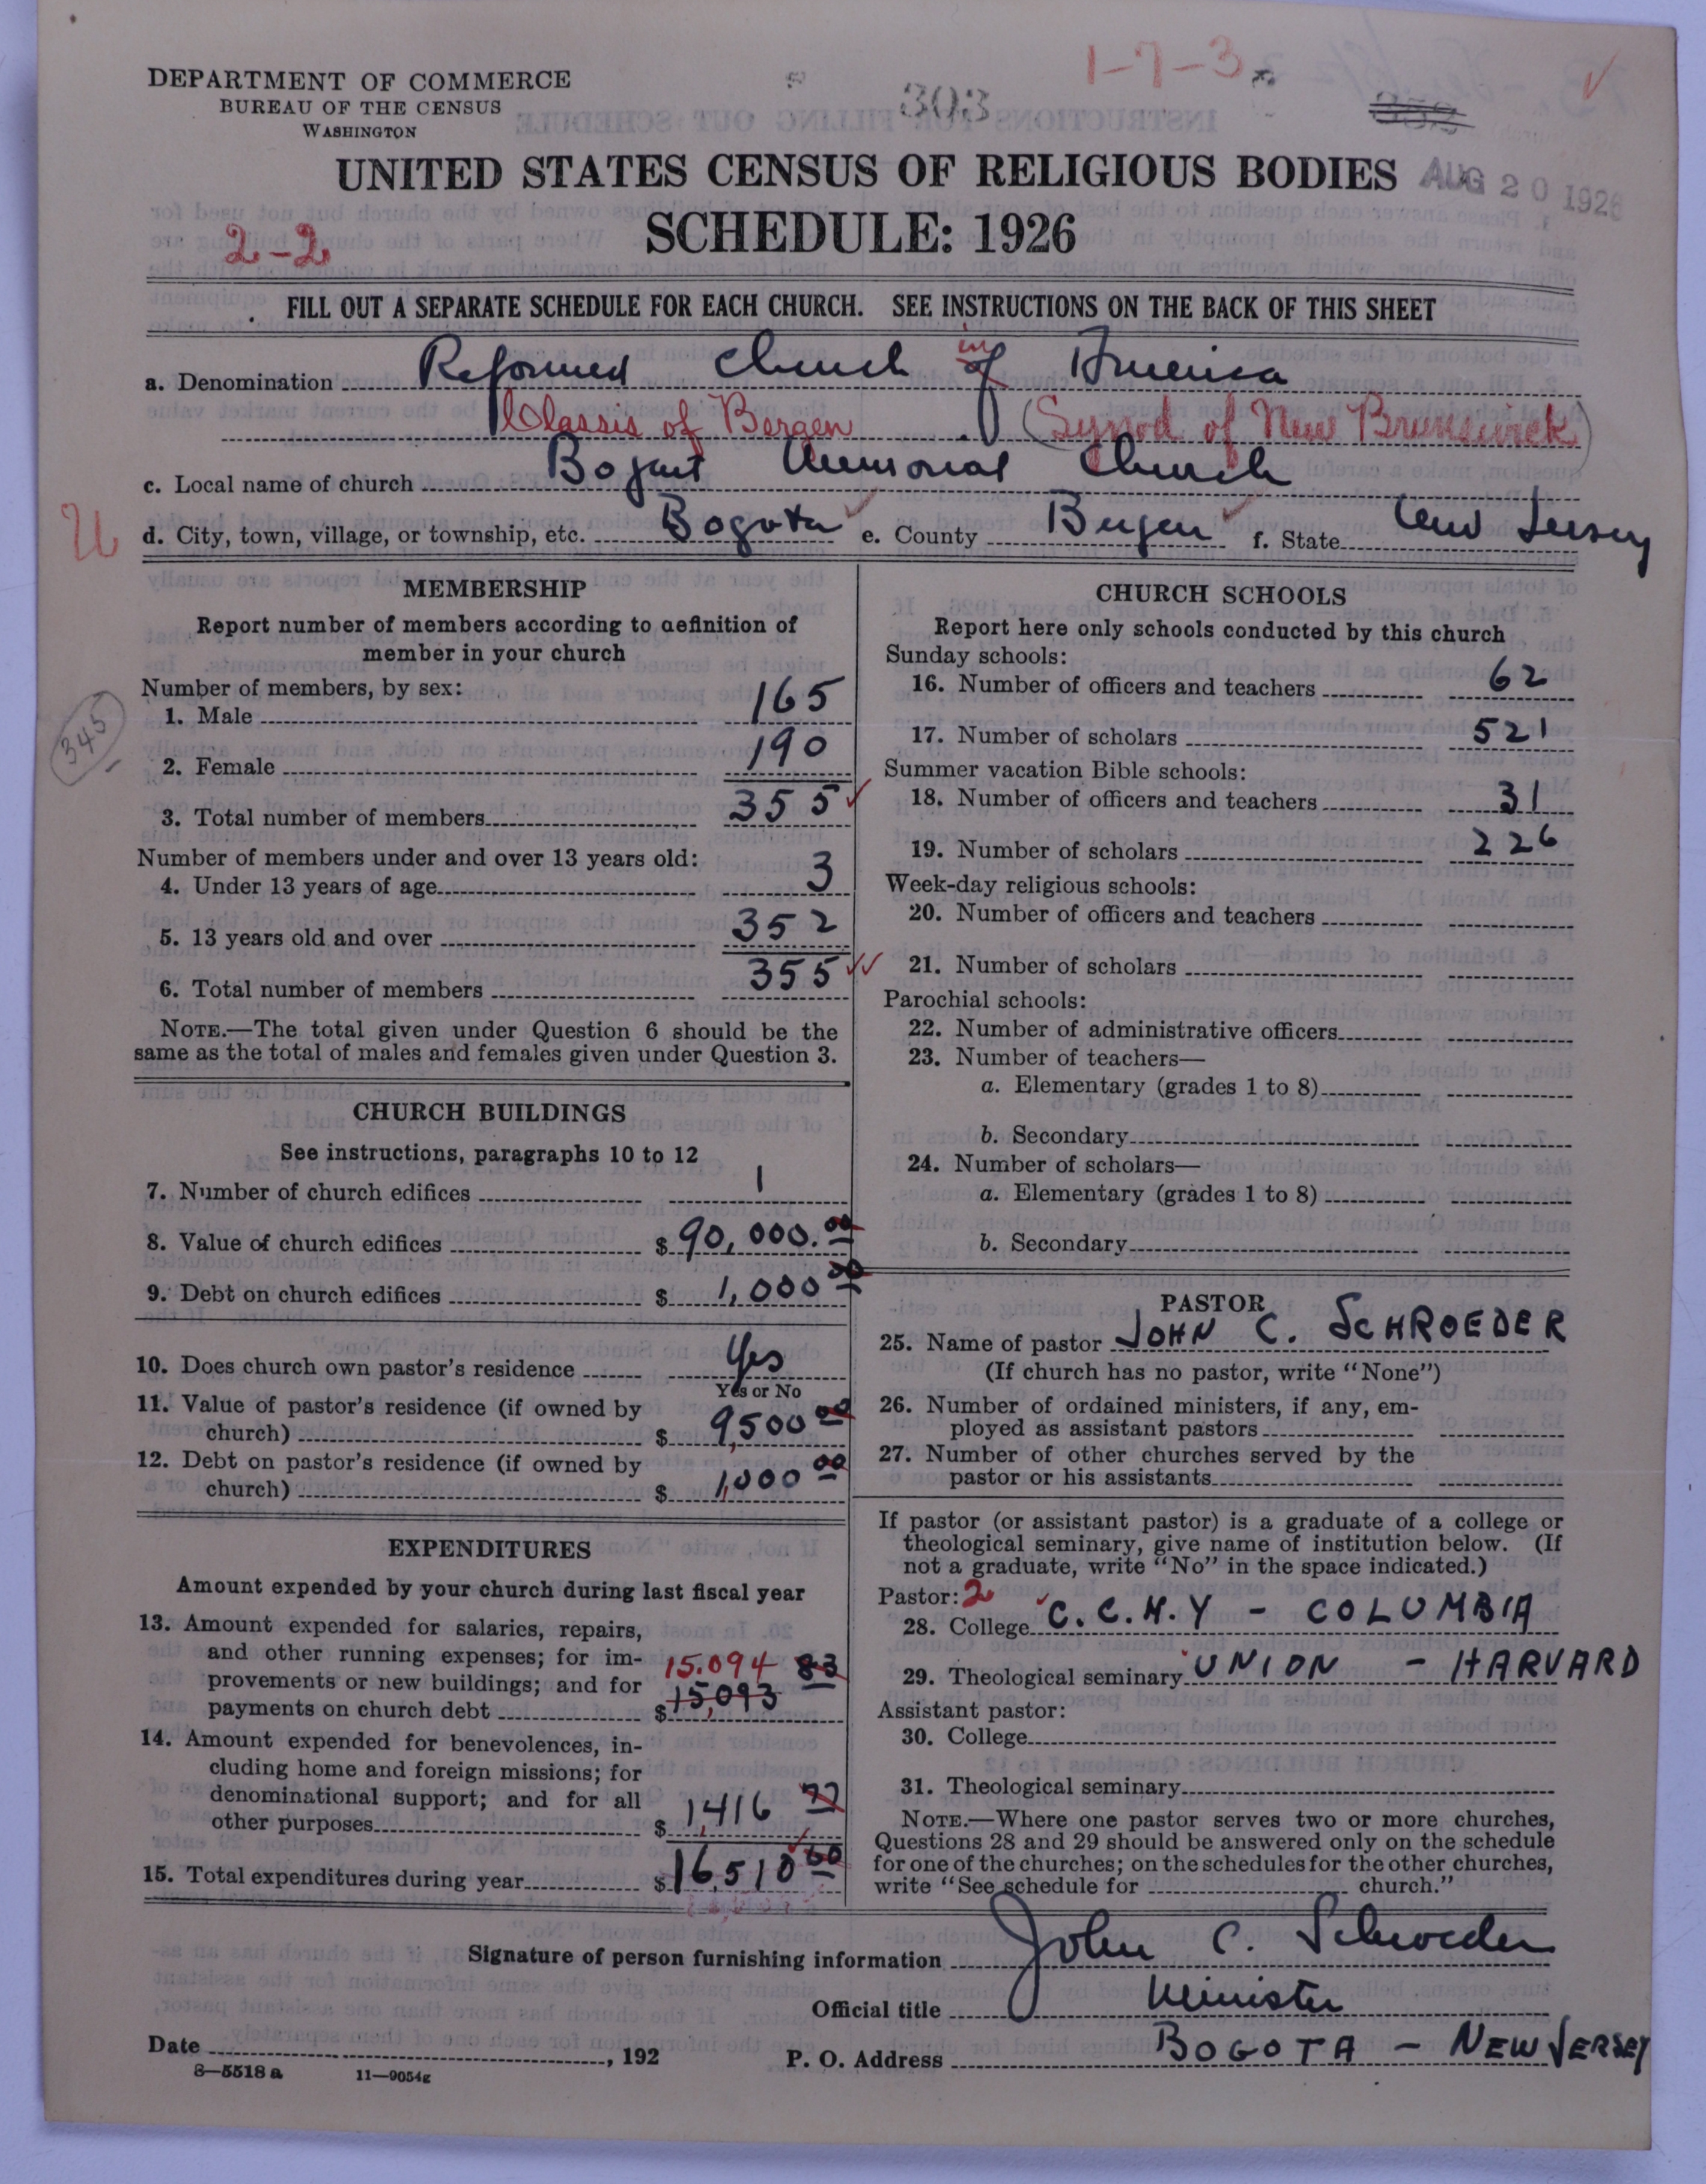 DEPARTMENT OF COMMERCE
BUREAU OF THE CENSUS
WASHINGTON
303
1-7-3
AUG 20 1926
UNITED STATES CENSUS OF RELIGIOUS BODIES
SCHEDULE: 1926
2-2
FILL OUT A SEPARATE SCHEDULE FOR EACH CHURCH. SEE INSTRUCTIONS ON THE BACK OF THIS SHEET
a. Denomination Reformed Church of in America
Classis of Bergen (Synod of New Brunswick)
c. Local name of church Bogart Memorial Church
d. City, town, village, or township, etc. Bogota e. County Bergen f. State New Jersey
MEMBERSHIP
Report number of members according to definition of
member in your church
Number of members, by sex:
1. Male 165
345
2. Female 190
3. Total number of members 355
Number of members under and over 13 years old:
4. Under 13 years of age 3
5. 13 years old and over 352
6. Total number of members 355
NOTE.—The total given under Question 6 should be the
same as the total of males and females given under Question 3.
CHURCH BUILDINGS
See instructions, paragraphs 10 to 12
7. Number of church edifices 1
8. Value of church edifices $ 90,000.00
9. Debt on church edifices $ 1,000 00
10. Does church own pastor's residence Yes
Yes or No
11. Value of pastor's residence (if owned by
church) $ 9,500 00
12. Debt on pastor's residence (if owned by
church) $ 1,000 00
EXPENDITURES
Amount expended by your church during last fiscal year
13. Amount expended for salaries, repairs,
and other running expenses; for im-
provements or new buildings; and for 15.094 83
payments on church debt $ 15,093
14. Amount expended for benevolences, in-
cluding home and foreign missions; for
denominational support; and for all
other purposes $ 1,416 77
15. Total expenditures during year $ 16,510 60
CHURCH SCHOOLS
Report here only schools conducted by this church
Sunday schools:
16. Number of officers and teachers 62
17. Number of scholars 521
Summer vacation Bible schools:
18. Number of officers and teachers 31
19. Number of scholars 226
Week-day religious schools:
20. Number of officers and teachers
21. Number of scholars
Parochial schools:
22. Number of administrative officers
23. Number of teachers—
a. Elementary (grades 1 to 8)
b. Secondary
24. Number of scholars—
a. Elementary (grades 1 to 8)
b. Secondary
PASTOR
25. Name of pastor JOHN C. SCHROEDER
(If church has no pastor, write "None")
26. Number of ordained ministers, if any, em-
ployed as assistant pastors
27. Number of other churches served by the
pastor or his assistants
If pastor (or assistant pastor) is a graduate of a college or
theological seminary, give name of institution below. (If
not a graduate, write "No" in the space indicated.)
Pastor: 2
28. College C.C.N.Y - COLUMBIA
29. Theological seminary UNION - HARVARD
Assistant pastor:
30. College
31. Theological seminary
NOTE.—Where one pastor serves two or more churches,
Questions 28 and 29 should be answered only on the schedule
for one of the churches; on the schedules for the other churches,
write "See schedule for church."
Signature of person furnishing information John C. Schroeder
Official title Minister
Date , 192
P. O. Address BOGOTA - NEW JERSEY
8—5518 a 11—9054g